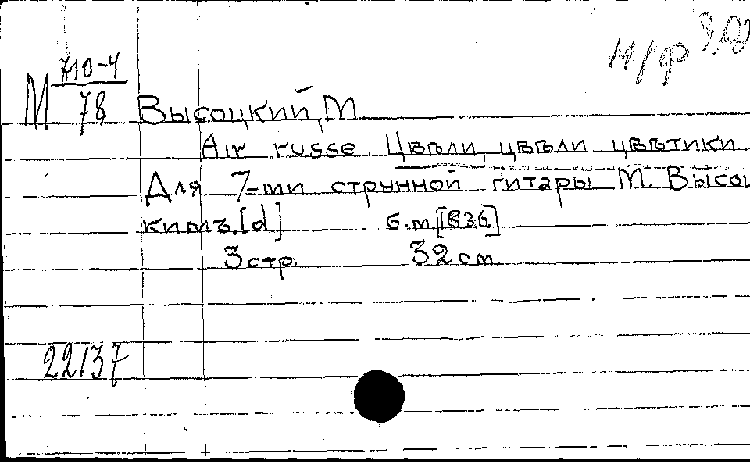 н/ф
М 710-4
78 Высоцкий, М
Air russe Цвѣли, цвѣли цвѣтики
Для 7-ми струнной гитары М. Высо
кимъ. [d] б.м. [1836]
3 стр. 32 см
22137